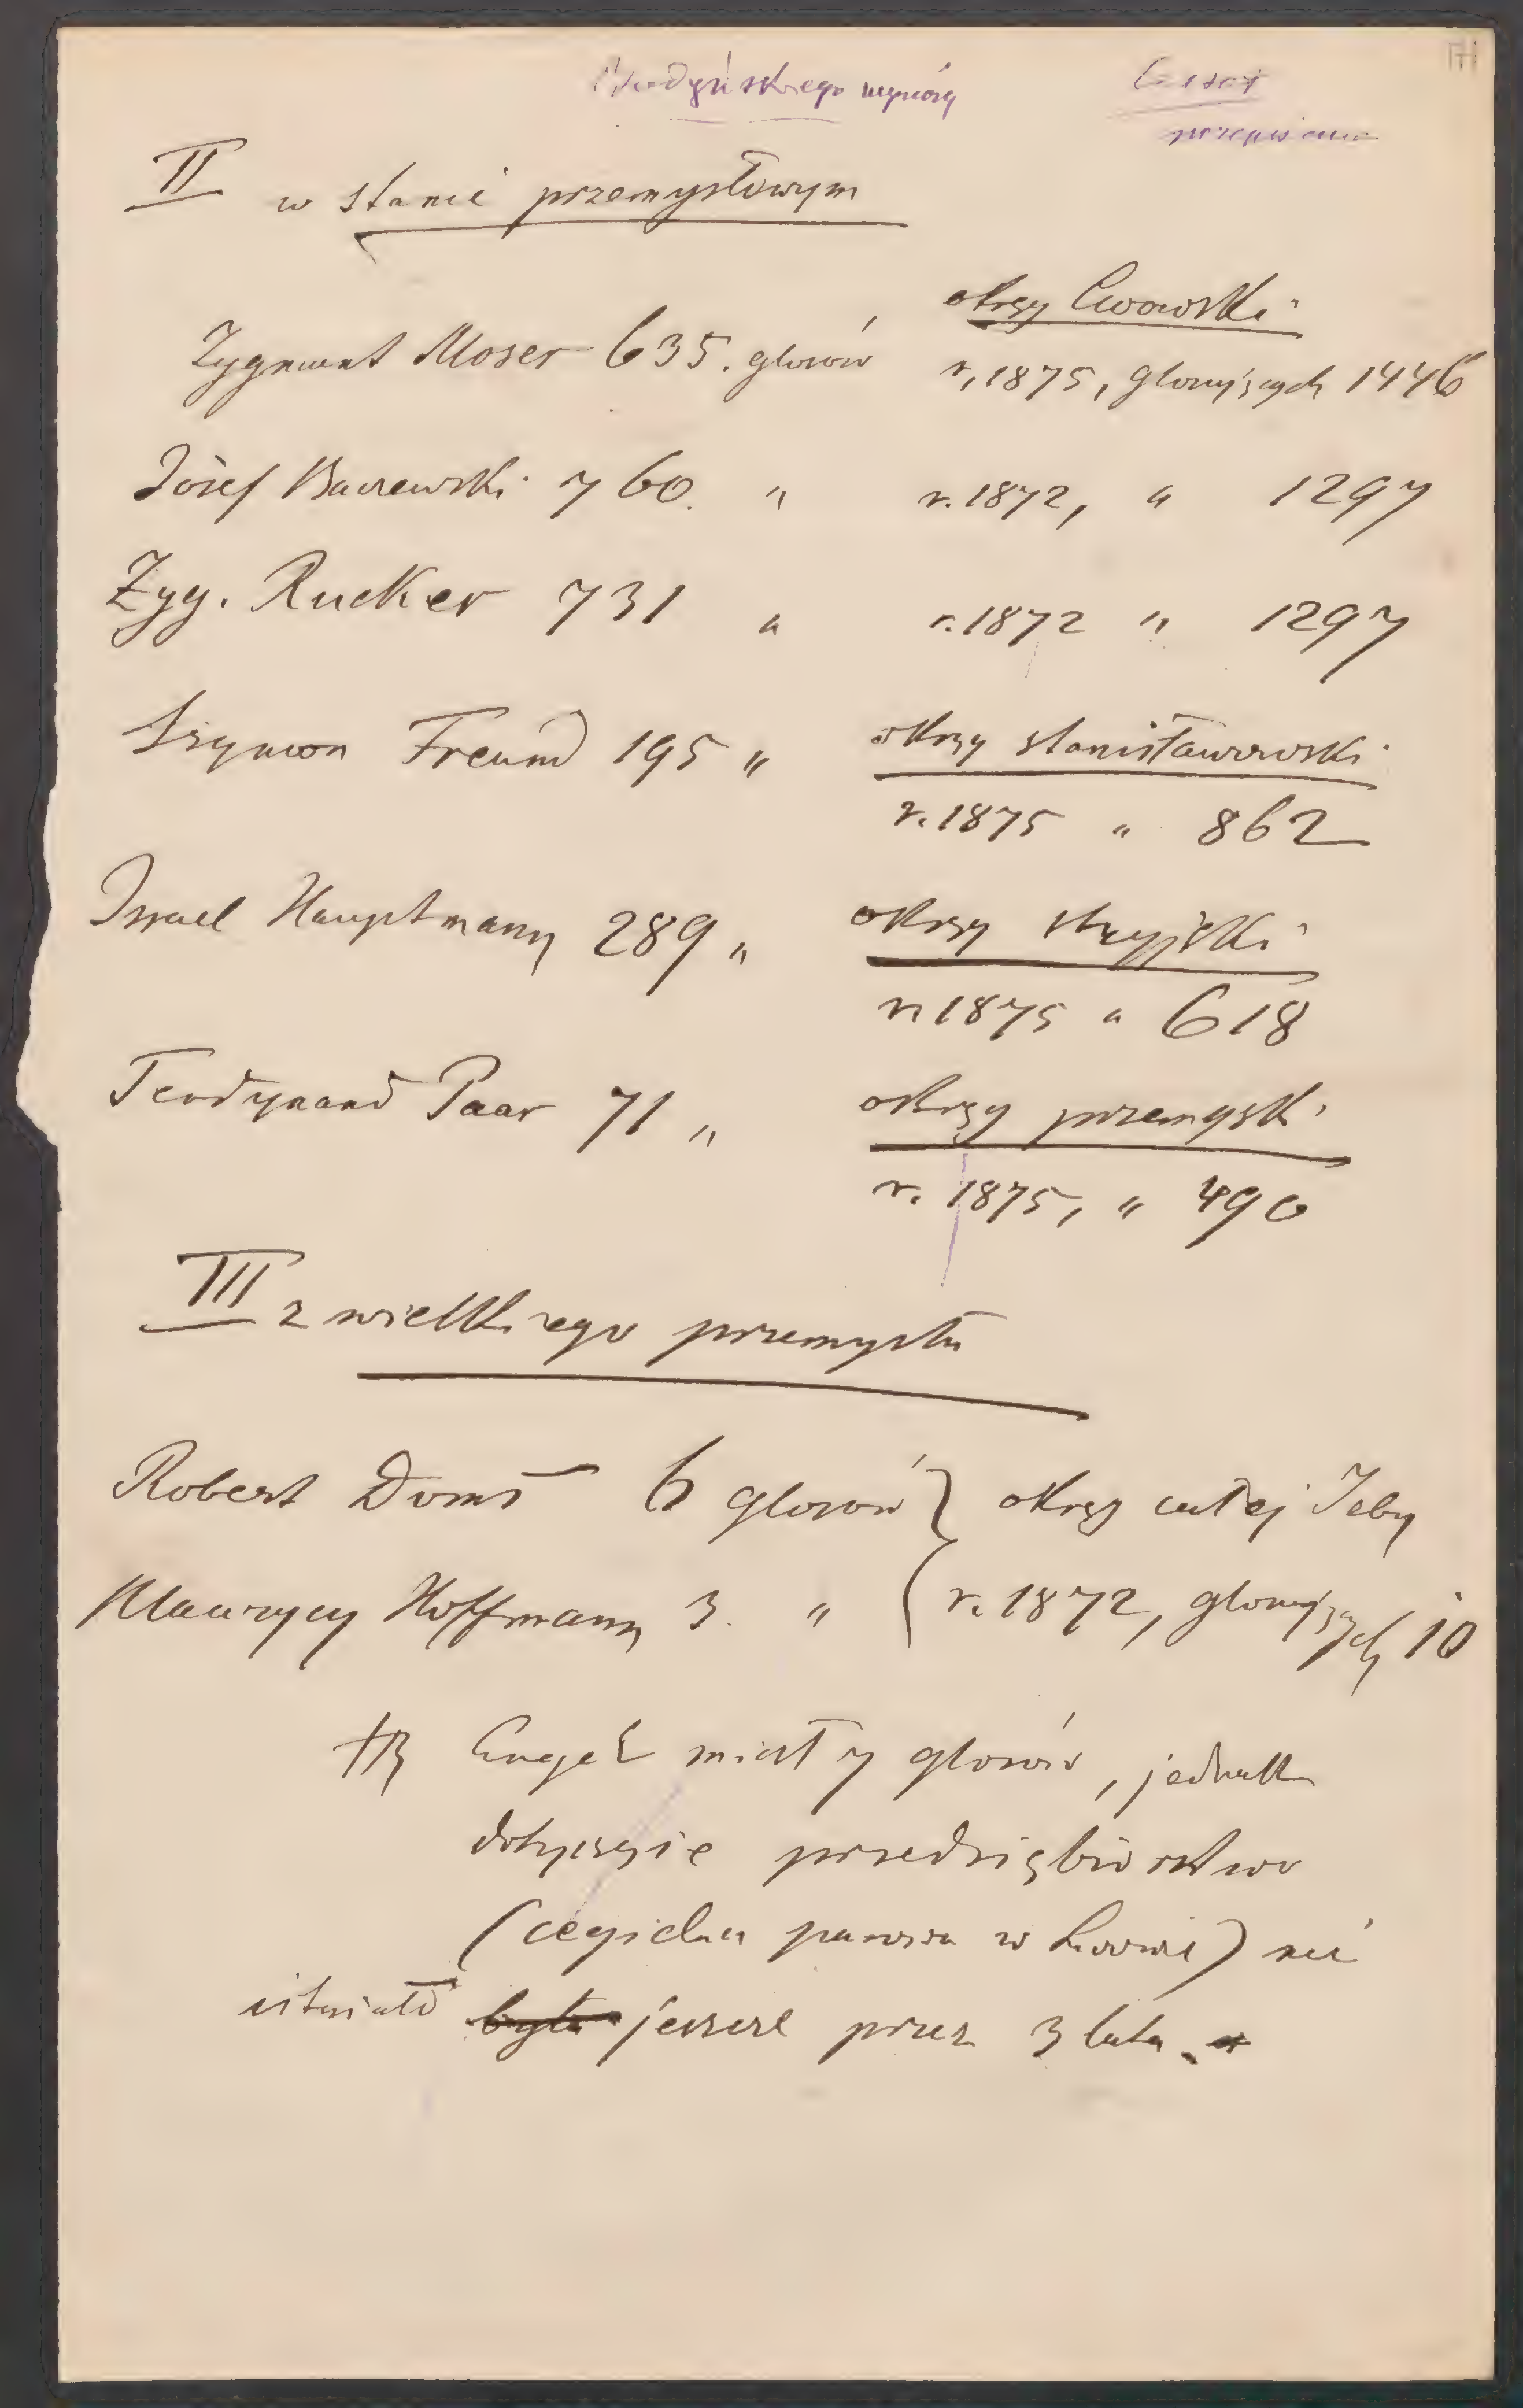 171
II w stanie przemysłowym
okręg Lwowski
Zygmunt Moser 635. głosów r. 1875, głosujących 1446
Józef Baczewski 760. " r. 1872, " 1297
Zyg. Rucker 731 " r. 1872 " 1297
Szymon Freund 195 " okręg stanisławowski
r. 1875 " 862
Israel Hauptmann 289 " okręg stryjski
r. 1875 " 618
Ferdynand Paar 71 " okręg przemyski
r. 1875, " 490
III z wielkiego przemysłu
Robert Doms 6 głosów } okręg całej Izby
Maurycy Hoffmann 3. " ( r. 1872, głosujących 10
NB Engel miał 7 głosów, jednak
dotyczące przedsiębiorstwo
(cegielnia parowa w Lwowie) nie
istniało było jeszcze przez 3 lata.